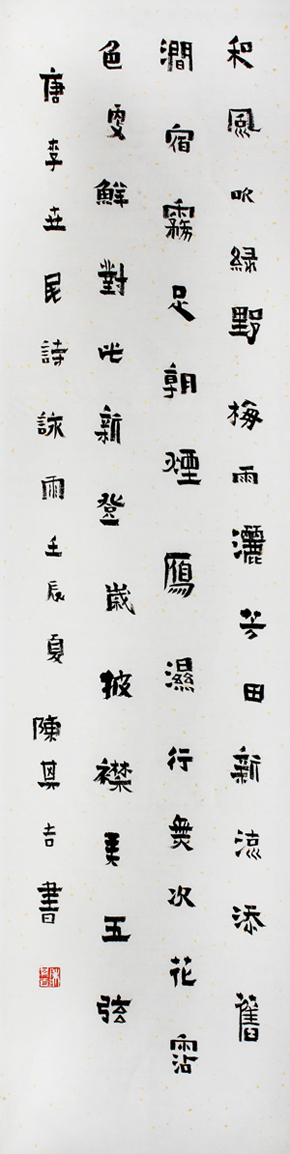 和風吹緑野梅雨灑芳田新流添舊
澗宿霧足朝煙鴈濕行無次花霑
色更鮮對此新登歲披襟弄五弦
唐李世民詩詠雨壬辰夏陳其吉書